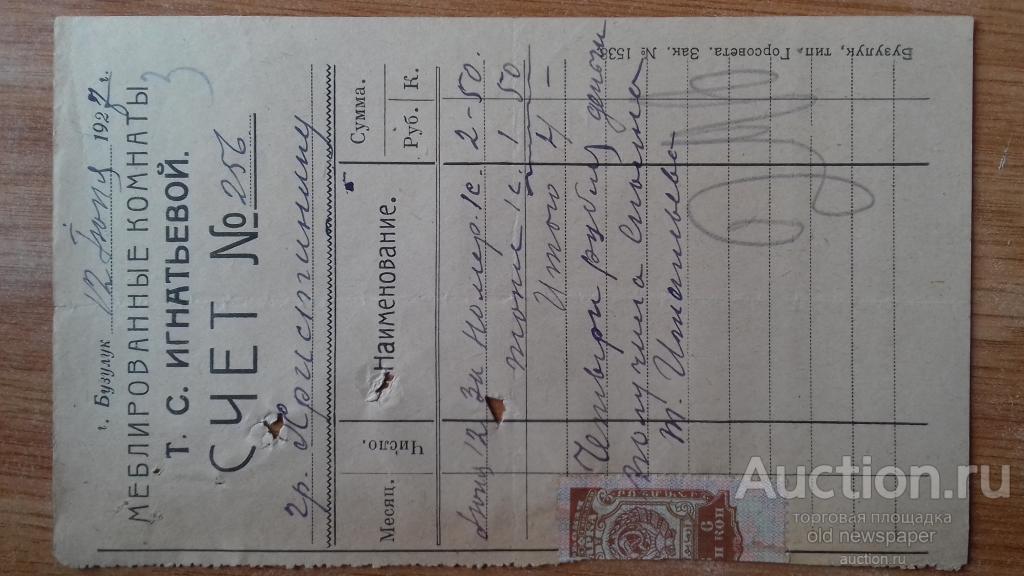 г. Бузулук 12 Июня 1927 г.
МЕБЛИРОВАННЫЕ КОМНАТЫ
Т. С. ИГНАТЬЕВОЙ.
СЧЕТ № 256
гр.
Месяц. Число. Наименование. Сумма.
Руб. К.
12 За Номер 1 с. 2-50
1 с. 1 50
Итого 4 -
рубли
Получила
Т. Игнатьева
Бузулук, тип. Горсовета. Зак. № 153
КОП
Auction.ru
торговая площадка
old newspaper
auction.ru